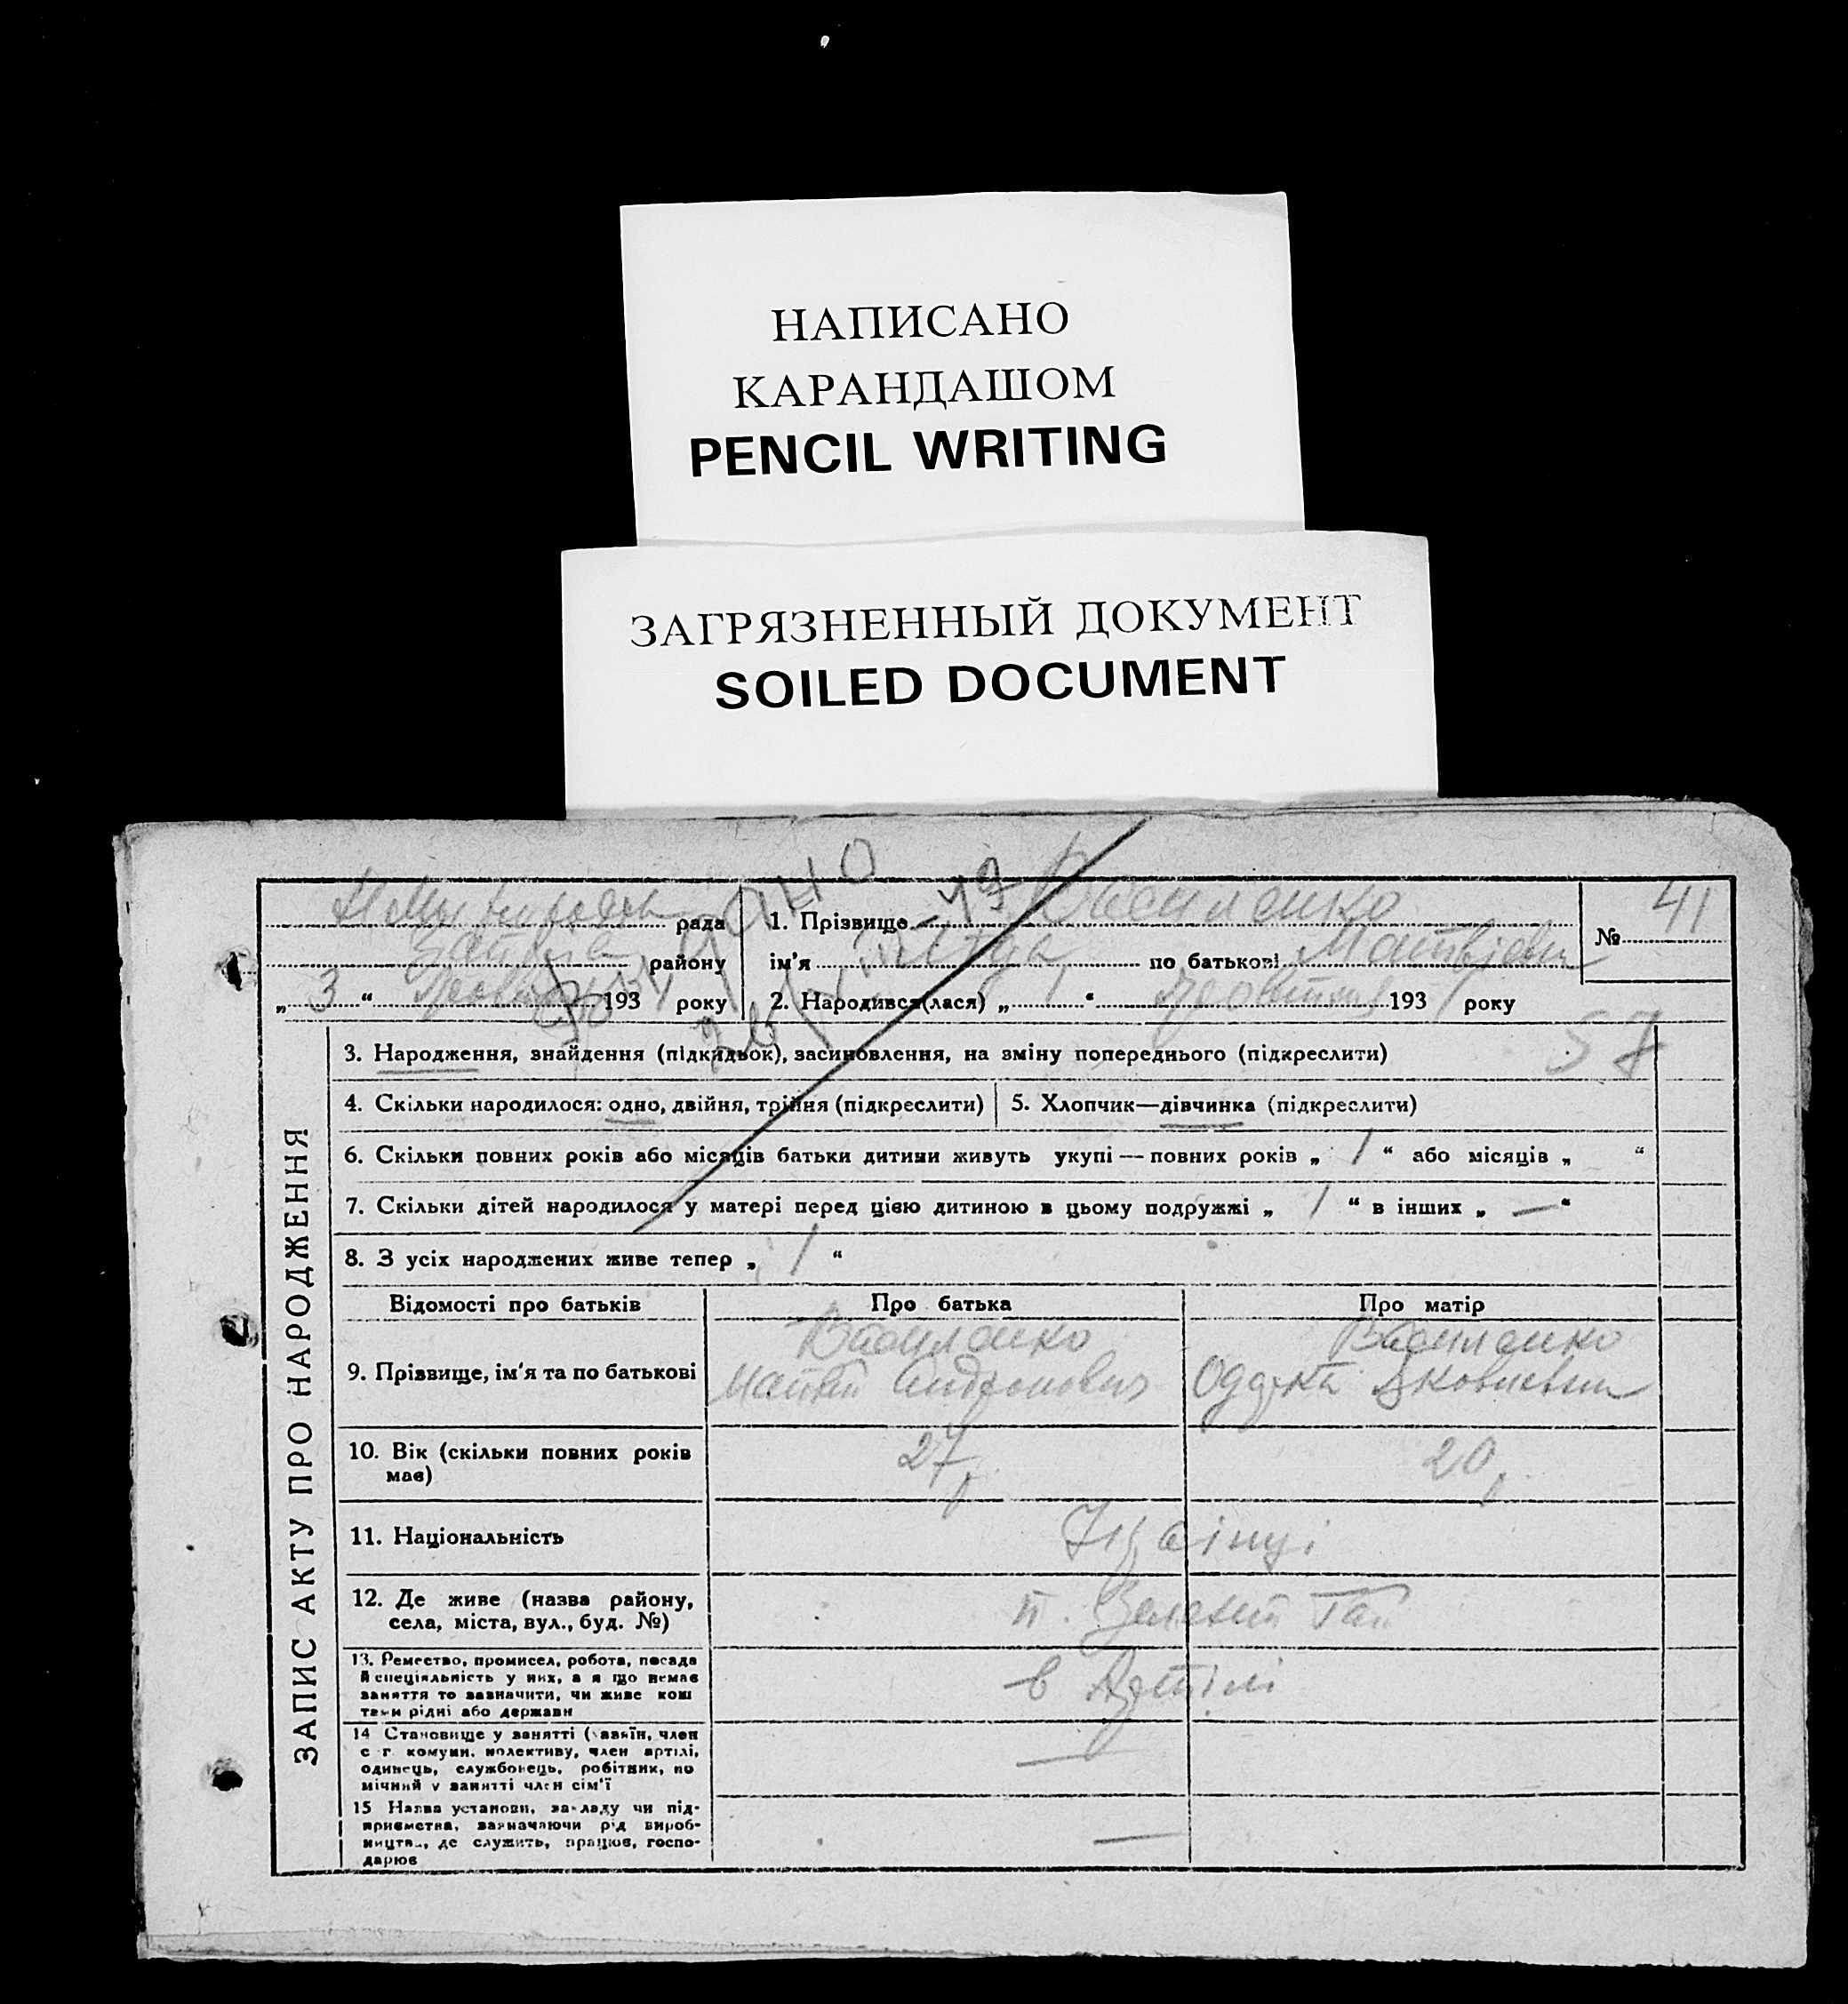 НАПИСАНО
КАРАНДАШОМ
PENCIL WRITING
ЗАГРЯЗНЕННЫЙ ДОКУМЕНТ
SOILED DOCUMENT
рада
району
„ 3 “ 193 року
1. Прізвище Василенко
ім'я по батькові
2. Народився(лася) „ “ 193 року
№ 41
57
ЗАПИС АКТУ ПРО НАРОДЖЕННЯ
3. Народження, знайдення (підкидьок), засиновлення, на зміну попереднього (підкреслити)
4. Скільки народилося: одно, двійня, трійня (підкреслити)
5. Хлопчик—дівчинка (підкреслити)
6. Скільки повних років або місяців батьки дитини живуть укупі — повних років „ 1 “ або місяців „ “
7. Скільки дітей народилося у матері перед цією дитиною в цьому подружжі „ 1 “ в інших „ — “
8. З усіх народжених живе тепер „ 1 “
Відомості про батьків
Про батька
Про матір
9. Прізвище, ім'я та по батькові
Василенко
Андронович
Василенко
10. Вік (скільки повних років
має)
27
20
11. Національність
12. Де живе (назва району,
села, міста, вул., буд. №)
Зелений Гай
13. Ремество, промисел, робота, посада
й спеціяльність у них, а я що немає
заняття то зазначити, чи живе кош
тами рідні або держави
в Артілі
14 Становище у занятті (хазяїн, член
с г. комуни, колективу, член артілі,
одинець, службовець, робітник, по
мічний у занятті член сім'ї
—
15 Назва установи, закладу чи під-
приємства, зазначаючи рід вироб-
ництва, де служить, працює, госпо-
дарює
—